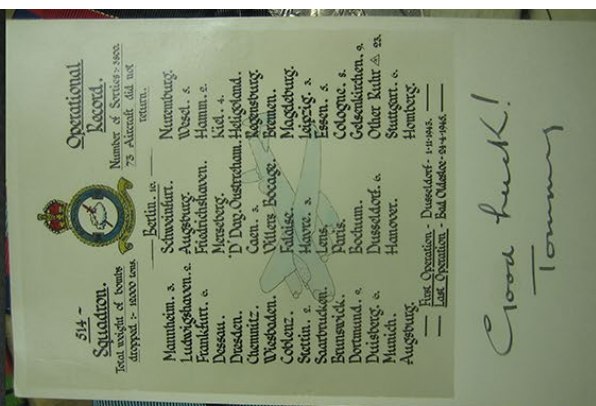 514 ~
Squadron.
Total weight of bombs
dropped :- 12000 tons.
Operational
Record.
Number of Sorties :- 3800.
73 Aircraft did not
return.
Berlin. 10.
Mannheim. 3.
Ludwigshaven. 2.
Frankfurt. 6.
Dessau.
Dresden.
Chemnitz.
Wiesbaden.
Coblenz.
Stettin. 2.
Saarbrucken.
Brunswick.
Dortmund. 2.
Duisberg. 6.
Munich.
Augsburg.
Schweinfurt.
Augsburg.
Friedrichshaven.
Merseberg.
"D" Day, Ouistreham.
Caen. 3.
Villers Bocage.
Falaise.
Havre. 3.
Lens.
Paris.
Bochum.
Dusseldorf. 6.
Hanover.
Nuremburg.
Wesel. 5.
Hamm. 2.
Kiel. 4.
Heligoland.
Regensburg.
Bremen.
Magdeburg.
Leipzig. 3.
Essen. 5.
Cologne. 8.
Gelsenkirchen. 9.
Other Ruhr 23.
Stuttgart. 6.
Homberg.
First Operation - Dusseldorf - 3-11-1943.
Last Operation - Bad Oldesloe - 24-4-1945.
Good Luck!
Tommy